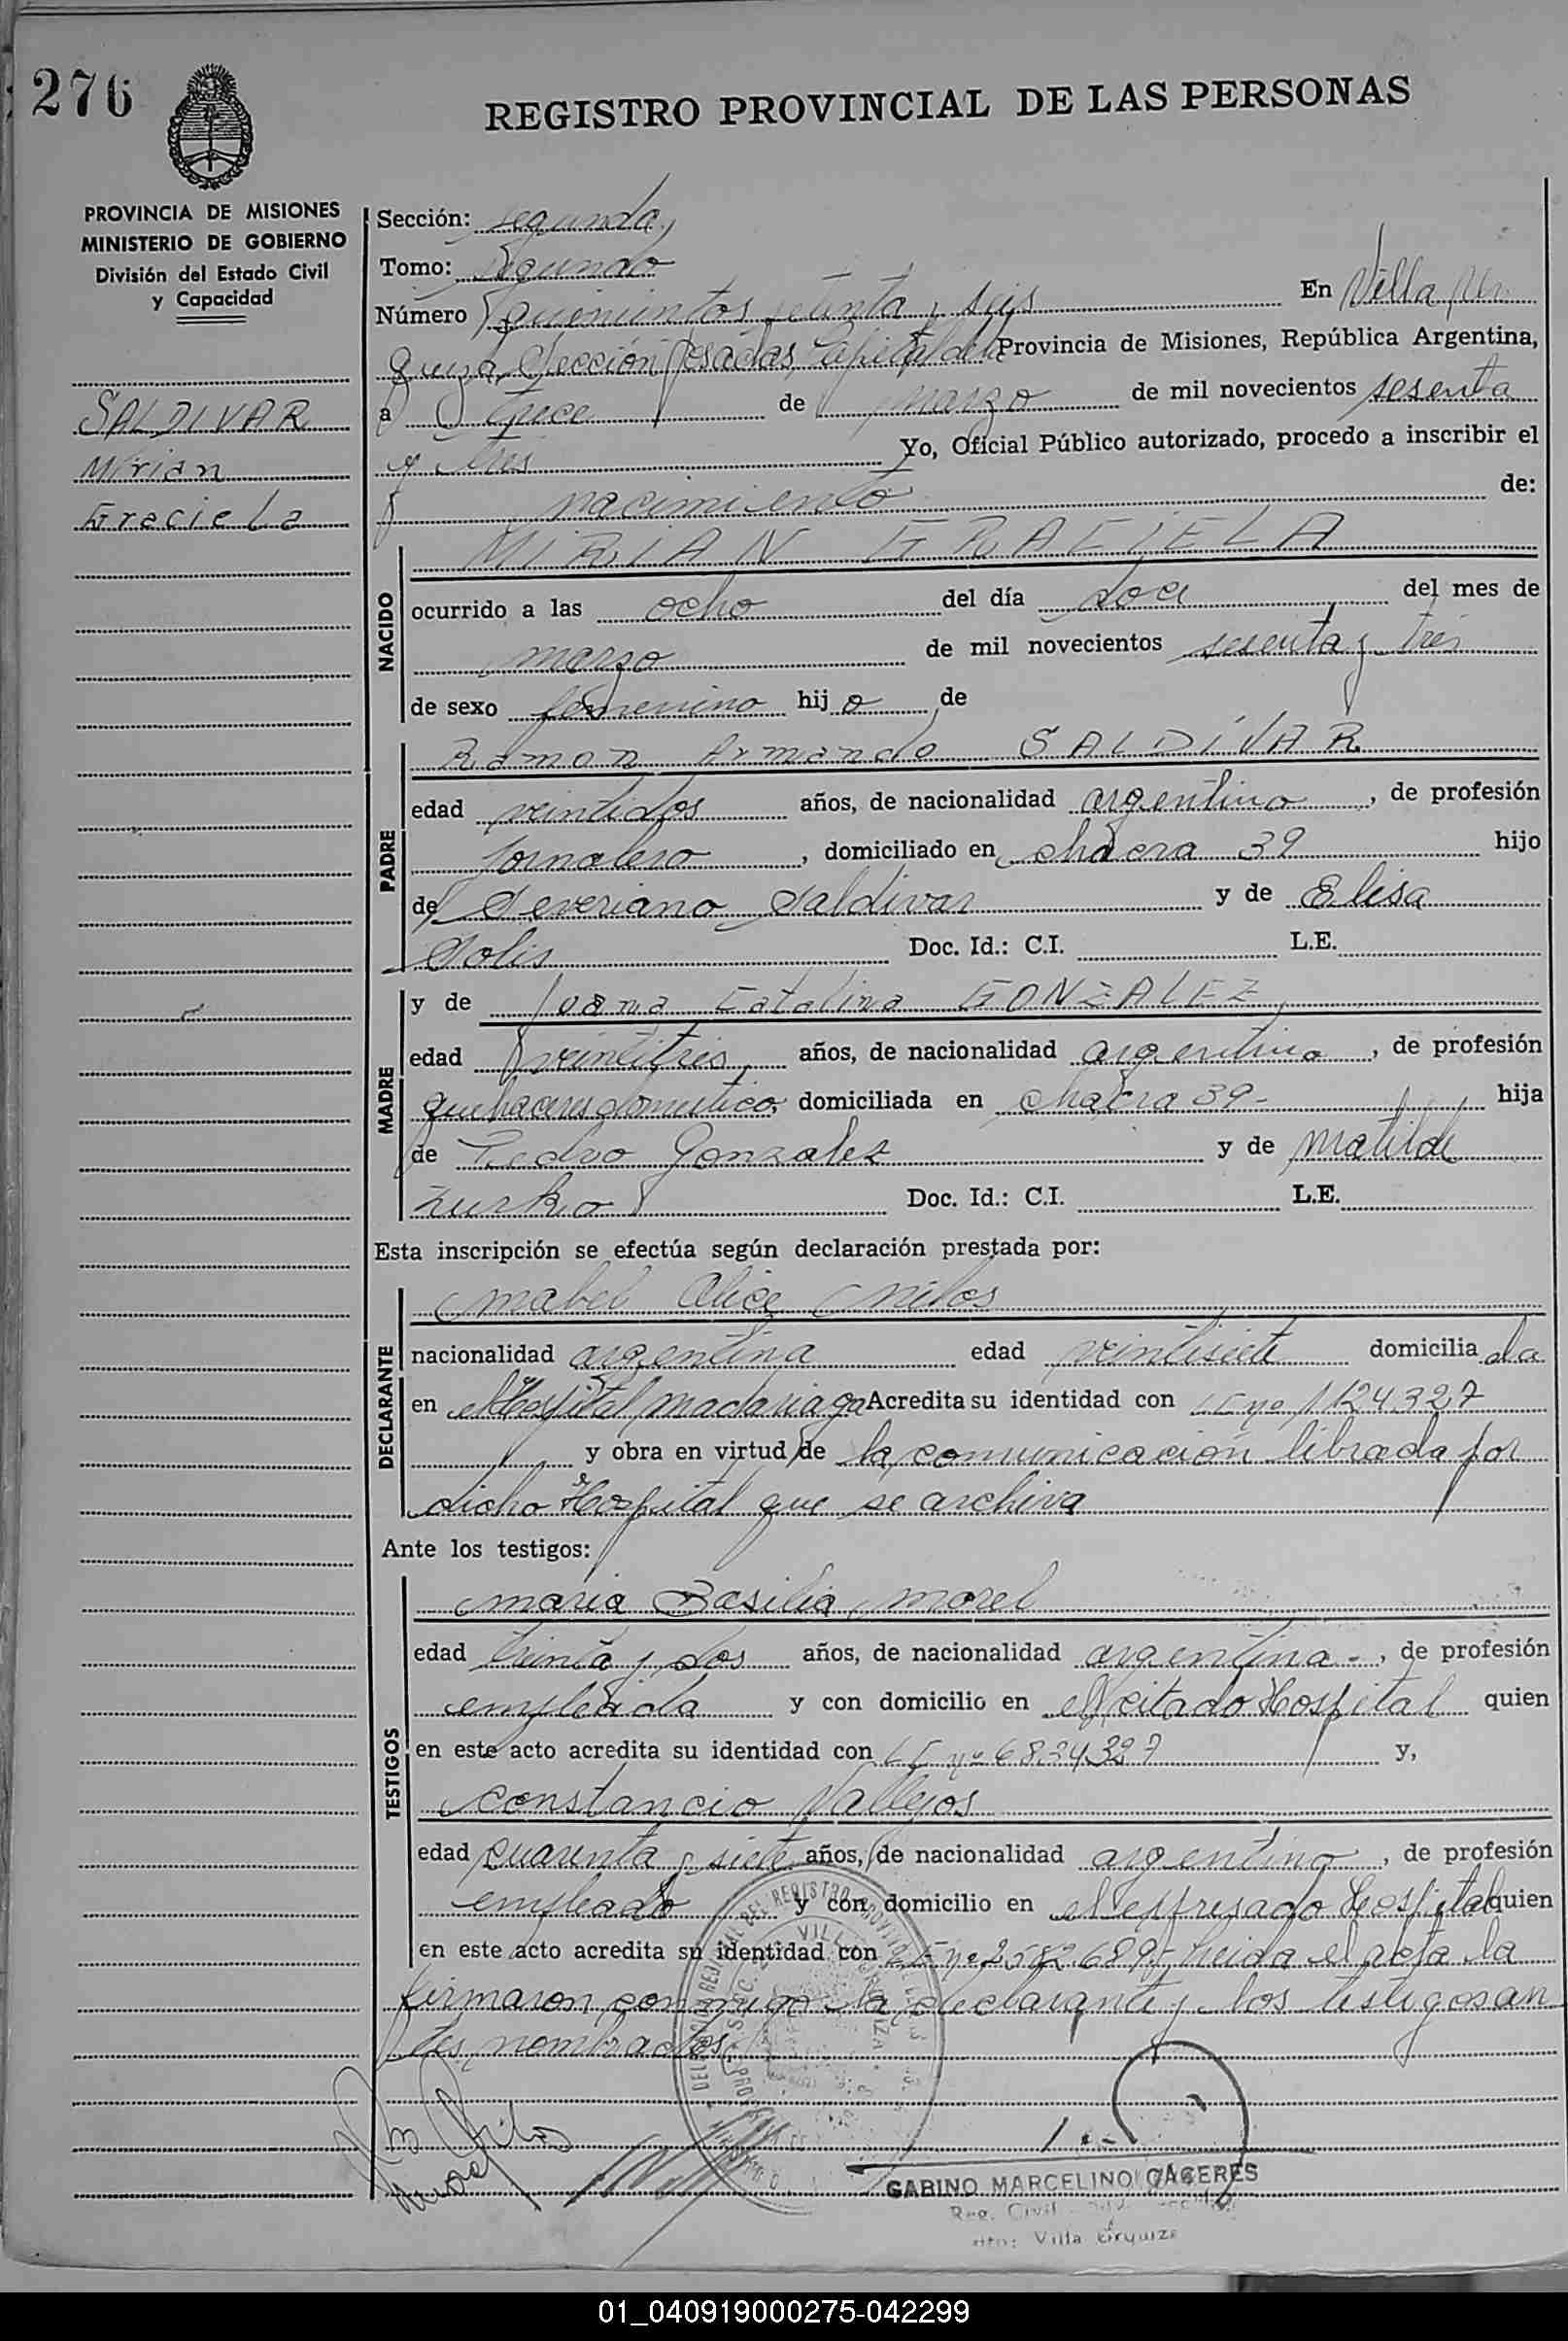 276
REGISTRO PROVINCIAL DE LAS PERSONAS
PROVINCIA DE MISIONES
MINISTERIO DE GOBIERNO
División del Estado Civil
y Capacidad
SALDIVAR
Mirian
Graciela
Sección: segunda
Tomo: Segundo
Número quinientos setenta y seis En Villa Ur
quiza, Sección Posadas, Capital de la Provincia de Misiones, República Argentina,
a trece de marzo de mil novecientos sesenta
y tres Yo, Oficial Público autorizado, procedo a inscribir el
nacimiento de:
NACIDO
MIRIAN GRACIELA
ocurrido a las ocho del día doce del mes de
marzo de mil novecientos sesenta y tres
de sexo femenino hij a de
PADRE
Ramon Armando SALDIVAR
edad veintidos años, de nacionalidad argentino, de profesión
jornalero, domiciliado en chacra 39 hijo
de Severiano Saldivar y de Elisa
Solis Doc. Id.: C.I. L.E.
MADRE
y de Juana Catalina GONZALEZ
edad veintitres años, de nacionalidad argentina, de profesión
quehaceres domestico, domiciliada en chacra 39- hija
de Pedro Gonzalez y de Matilde
Zurko Doc. Id.: C.I. L.E.
Esta inscripción se efectúa según declaración prestada por:
DECLARANTE
Mabel Alice
nacionalidad argentina edad veintisiete domicilia da
en el Hospital Madariaga Acredita su identidad con LC nº 1.124.327
y obra en virtud de la comunicación librada por
dicho Hospital que se archiva
Ante los testigos:
TESTIGOS
Maria Basilia Morel
edad treinta y dos años, de nacionalidad argentina-, de profesión
empleada y con domicilio en el citado Hospital quien
en este acto acredita su identidad con LC nº 6834327 y,
Constancio Vallejos
edad cuarenta y siete años, de nacionalidad argentino, de profesión
empleado y con domicilio en el expresado Hospital quien
en este acto acredita su identidad con nº 2582.689- Leida el acta la
firmaron conmigo la declarante y los testigos an
tes nombrados
GABINO MARCELINO CACERES
Reg. Civil
Villa Urquiza
01_040919000275-042299